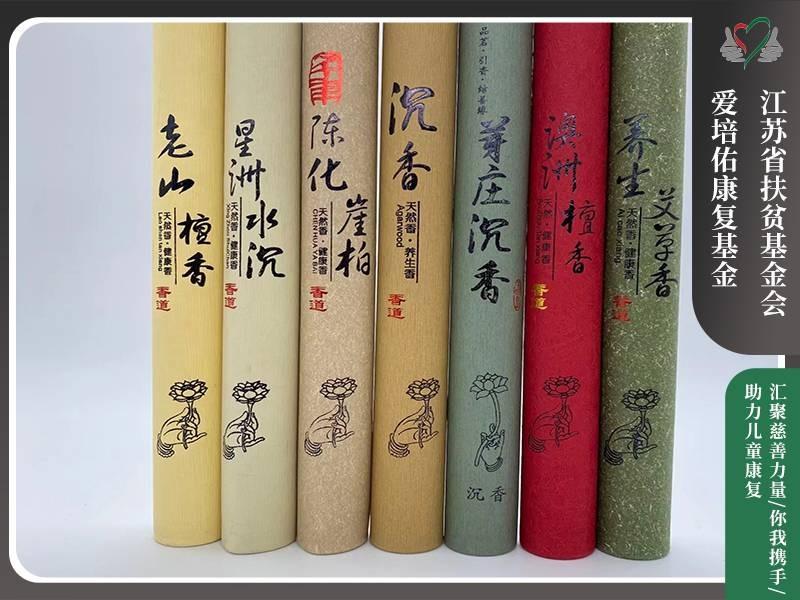 老山
檀香
天然香·健康香
Lao shan tan xiang
香道
星洲
水沉
天然香·健康香
Xing Zhou Shui Chen
香道
陈化
崖柏
天然香·健康香
CHEN HUA YA BAI
香道
沉香
天然香·养生香
Agarwood
香道
品茗·引香·结善缘
芽庄沉香
沉香
澳洲
檀香
天然香·健康香
香道
养生
艾草香
天然香·健康香
Ai cao xiang
香道
江苏省扶贫基金会
爱培佑康复基金
汇聚慈善力量/你我携手/
助力儿童康复